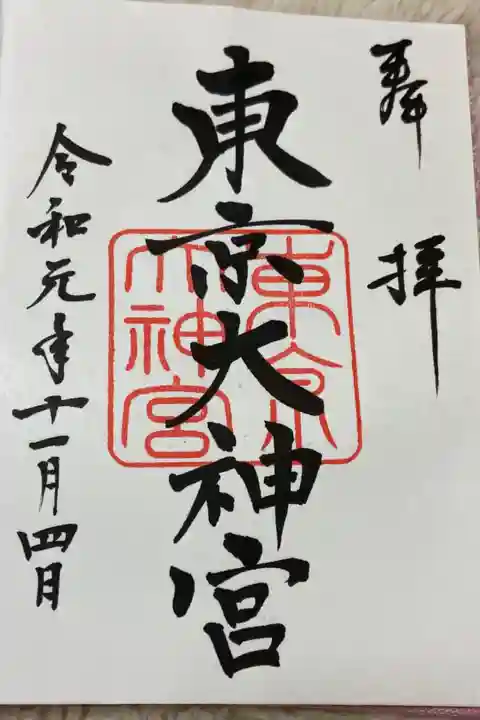 奉拝
東京大神宮
東京大神宮
令和元年十一月四日